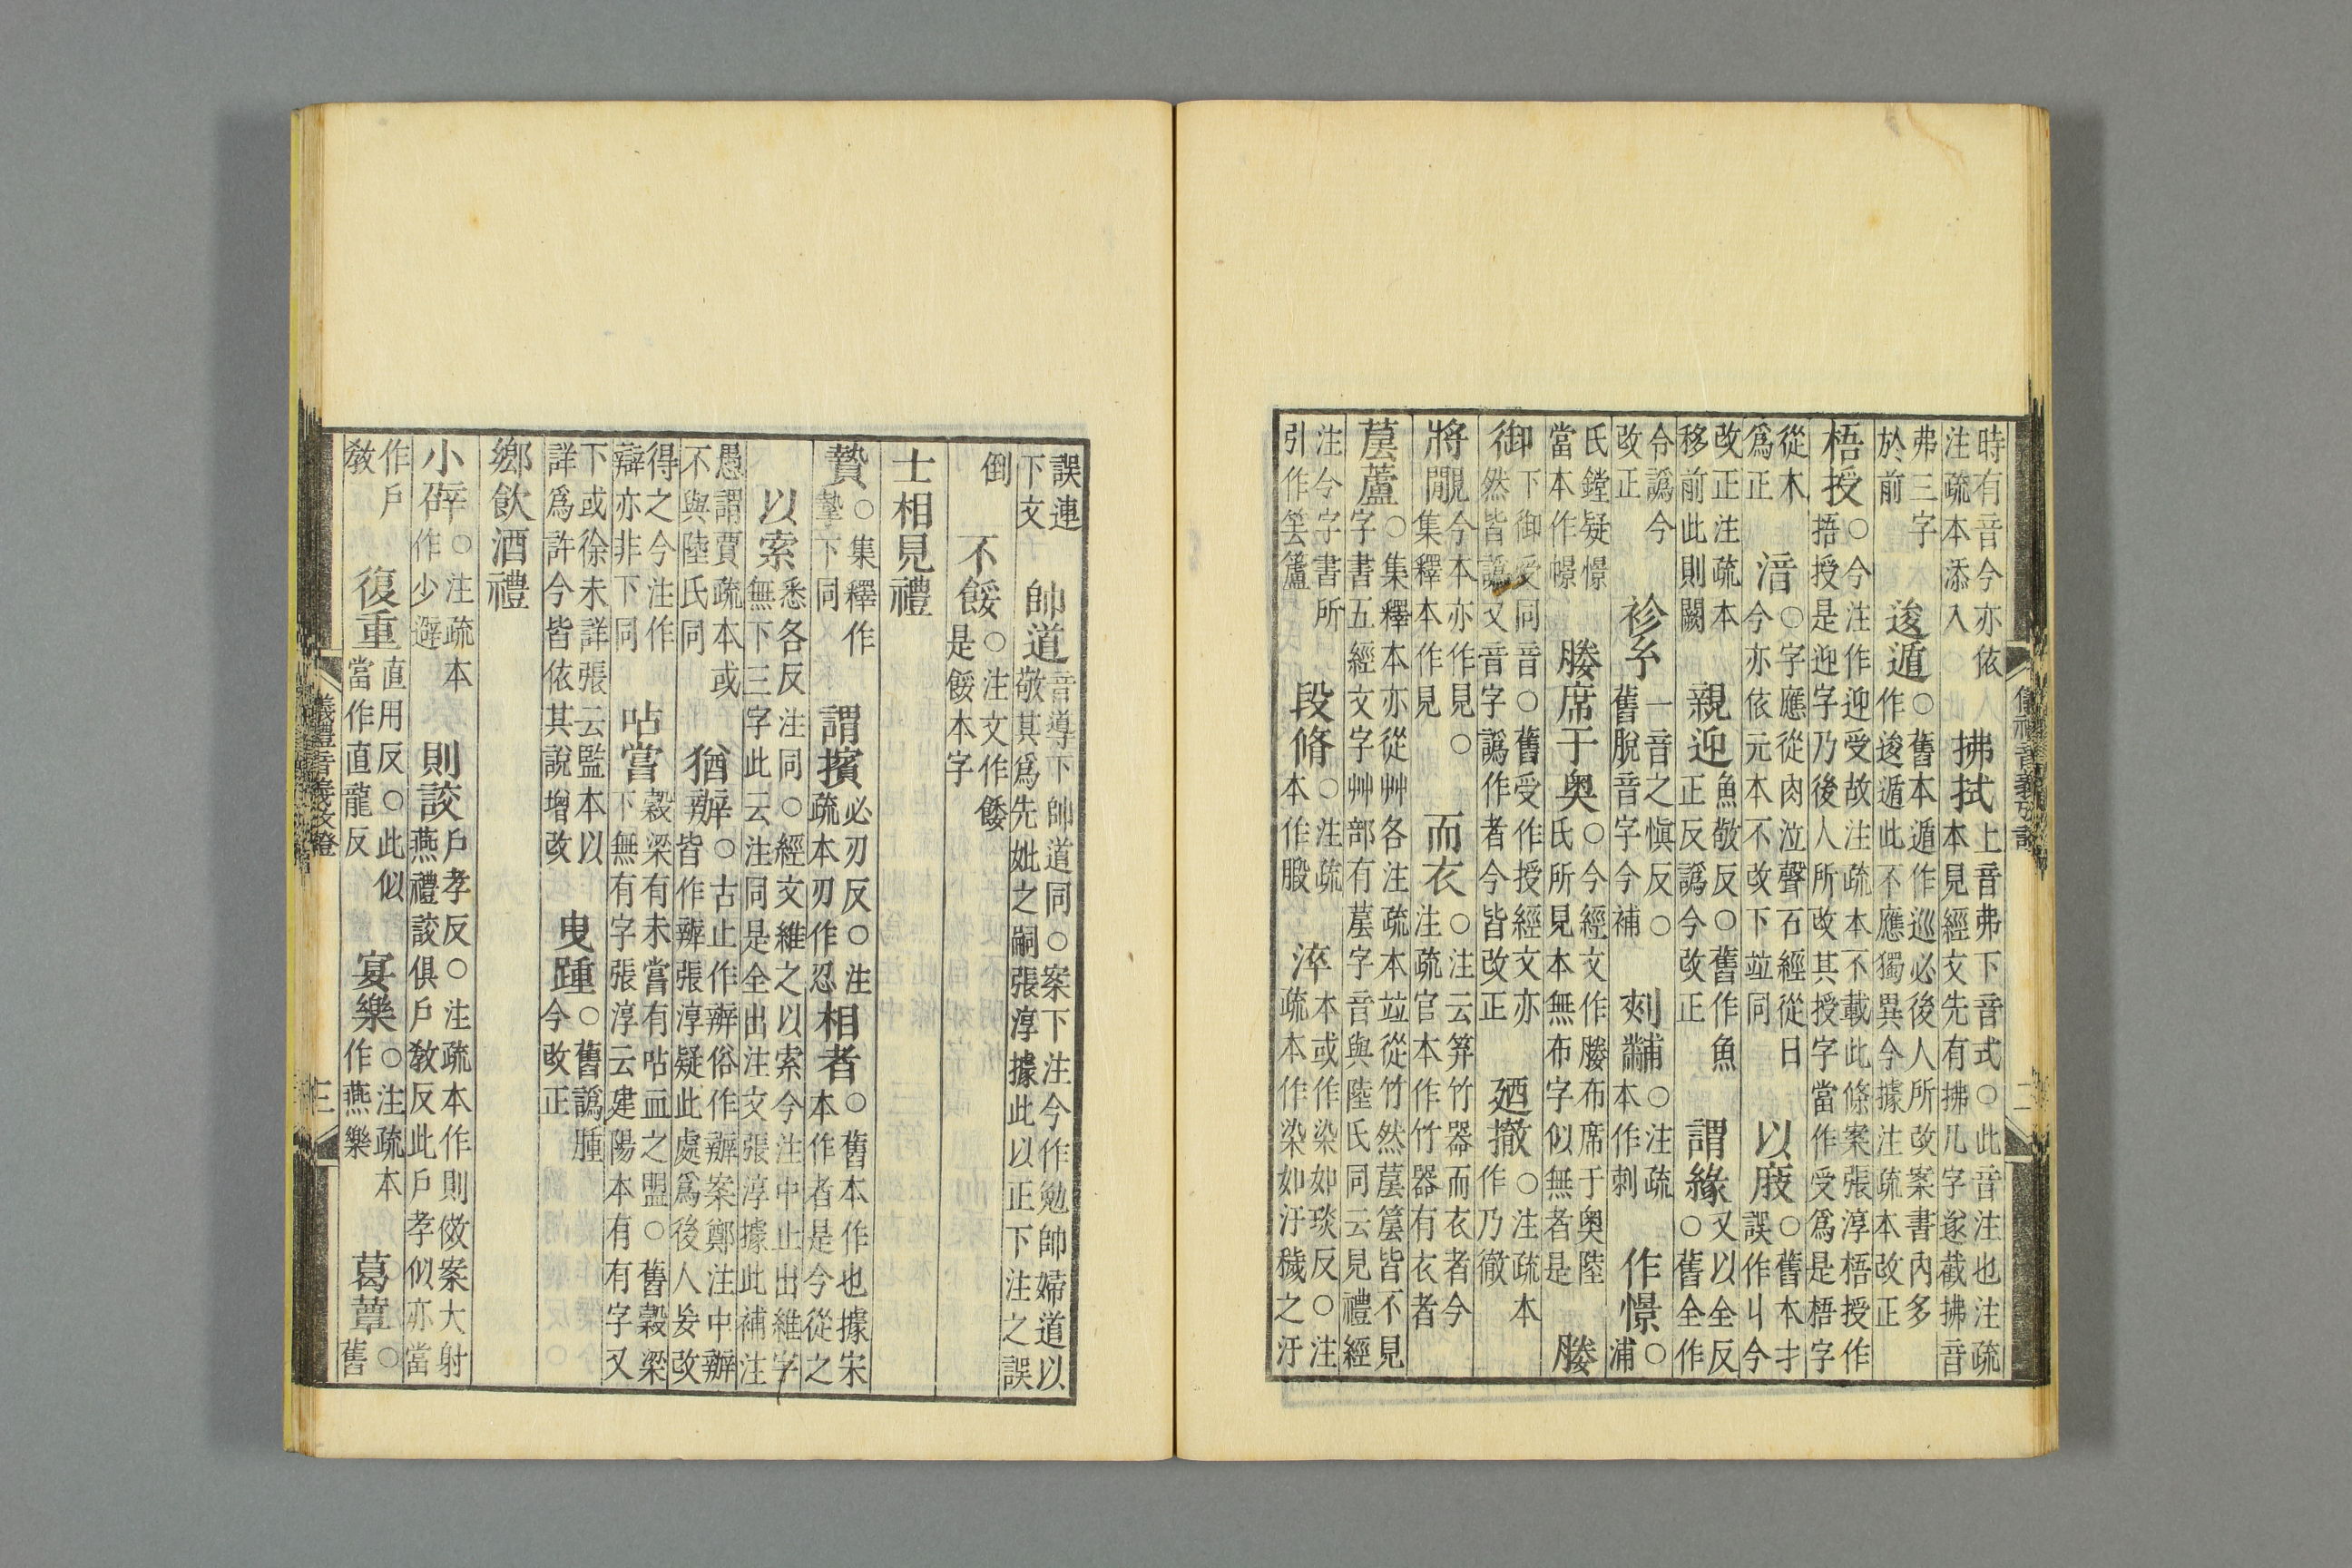 時有音今亦依
注疏本添入
拂拭
上音弗下音式○此音注也注疏
本見經文先有拂几字遂截拂音
弗三字
於前
逡遁
○舊本遁作巡必後人所改案書內多
作逡遁此不應獨異今據注疏本改正
梧授
○今注作迎受故注疏本不載此條案張淳梧授作
捂授是迎字乃後人所改其授字當作受爲是梧字
從木
爲正
湆
○字應從肉泣聲石經從日
今亦依元本不改下竝同
以
○舊本才
誤作丩今
改正注疏本
移前此則闕
親迎
魚敬反○舊作魚
正反譌今改正
謂緣
又以全反
○舊全作
令譌今
改正
袗糸
一音之愼反○
舊脫音字今補
刻黼
○注疏
本作刺
作憬
○
浦
氏鏜疑憬
當本作幜
媵席于奥
○今經文作媵布席于奥陸
氏所見本無布字似無者是
媵
御
下御受同音○舊受作授經文亦
然皆譌又音字譌作者今皆改正
廼撤
○注疏本
作乃徹
將
今本亦作見○
集釋本作見
而衣
○注云笲竹器而衣者今
注疏官本作竹器有衣者
蘆
○集釋本亦從艸各注疏本竝從竹然皆不見
字書五經文字艸部有字音與陸氏同云見禮經
注今字書所
引作
段脩
○注疏
本作腶
淬
本或作染如琰反○注
疏本作染如汙穢之汙
儀禮音義攷證
二
誤連
下文
帥道
音導下帥道同○案下注今作勉帥婦道以
敬其爲先妣之嗣張淳據此以正下注之誤
倒
不餒
○注文作餧
是餒本字
士相見禮
贄
○集釋作
摯下同
謂擯
必刃反○注
疏本刃作忍
相者
○舊本作也據宋
本作者是今從之
以索
悉各反注同○經文維之以索今注中止出維字
無下三字此云注同是全出注文張淳據此補注
愚謂賈疏本或
不與陸氏同
猶辦
○古止作辨俗作辦案鄭注中辦
皆作辦張淳疑此處爲後人妄改
得之今注作
辯亦非下同
呫嘗
穀梁有未嘗有呫血之盟○舊穀梁
下無有字張淳云建陽本有有字又
下或徐未詳張云監本以
詳爲許今皆依其說增改
曳踵
○舊譌腫
今改正
鄉飲酒禮
小
○注疏本
作少避
則詨
戶孝反○注疏本作則傚案大射
燕禮詨俱戶敎反此戶孝似亦當
作戶
敎
復重
直用反○此似
當作直龍反
宴樂
○注疏本
作燕樂
葛蕈
○
舊
儀禮音義攷證
三